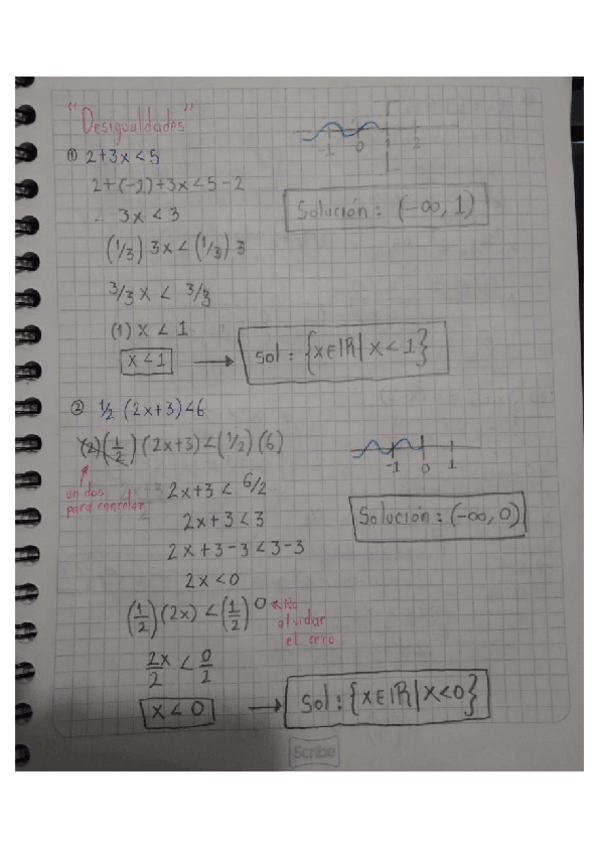 "Desigualdades"
① 2+3x<5
2+(-2)+3x<5-2
3x<3
(1/3) 3x<(1/3) 3
3/3 x < 3/3
(1) x < 1
x<1 → Sol: {x∈ℝ| x<1}
-1 0 1 2
Solución: (-∞, 1)
② 1/2 (2x+3)<6
(2)(1/2)(2x+3)<(1/2)(6)
un dos
para cancelar
2x+3< 6/2
2x+3<3
2x+3-3<3-3
2x<0
(1/2)(2x)<(1/2)0 ← No
olvidar
el cero
2x/2 < 0/2
x<0 → Sol: {x∈ℝ| x<0}
-1 0 1
Solución: (-∞, 0)
Scribe